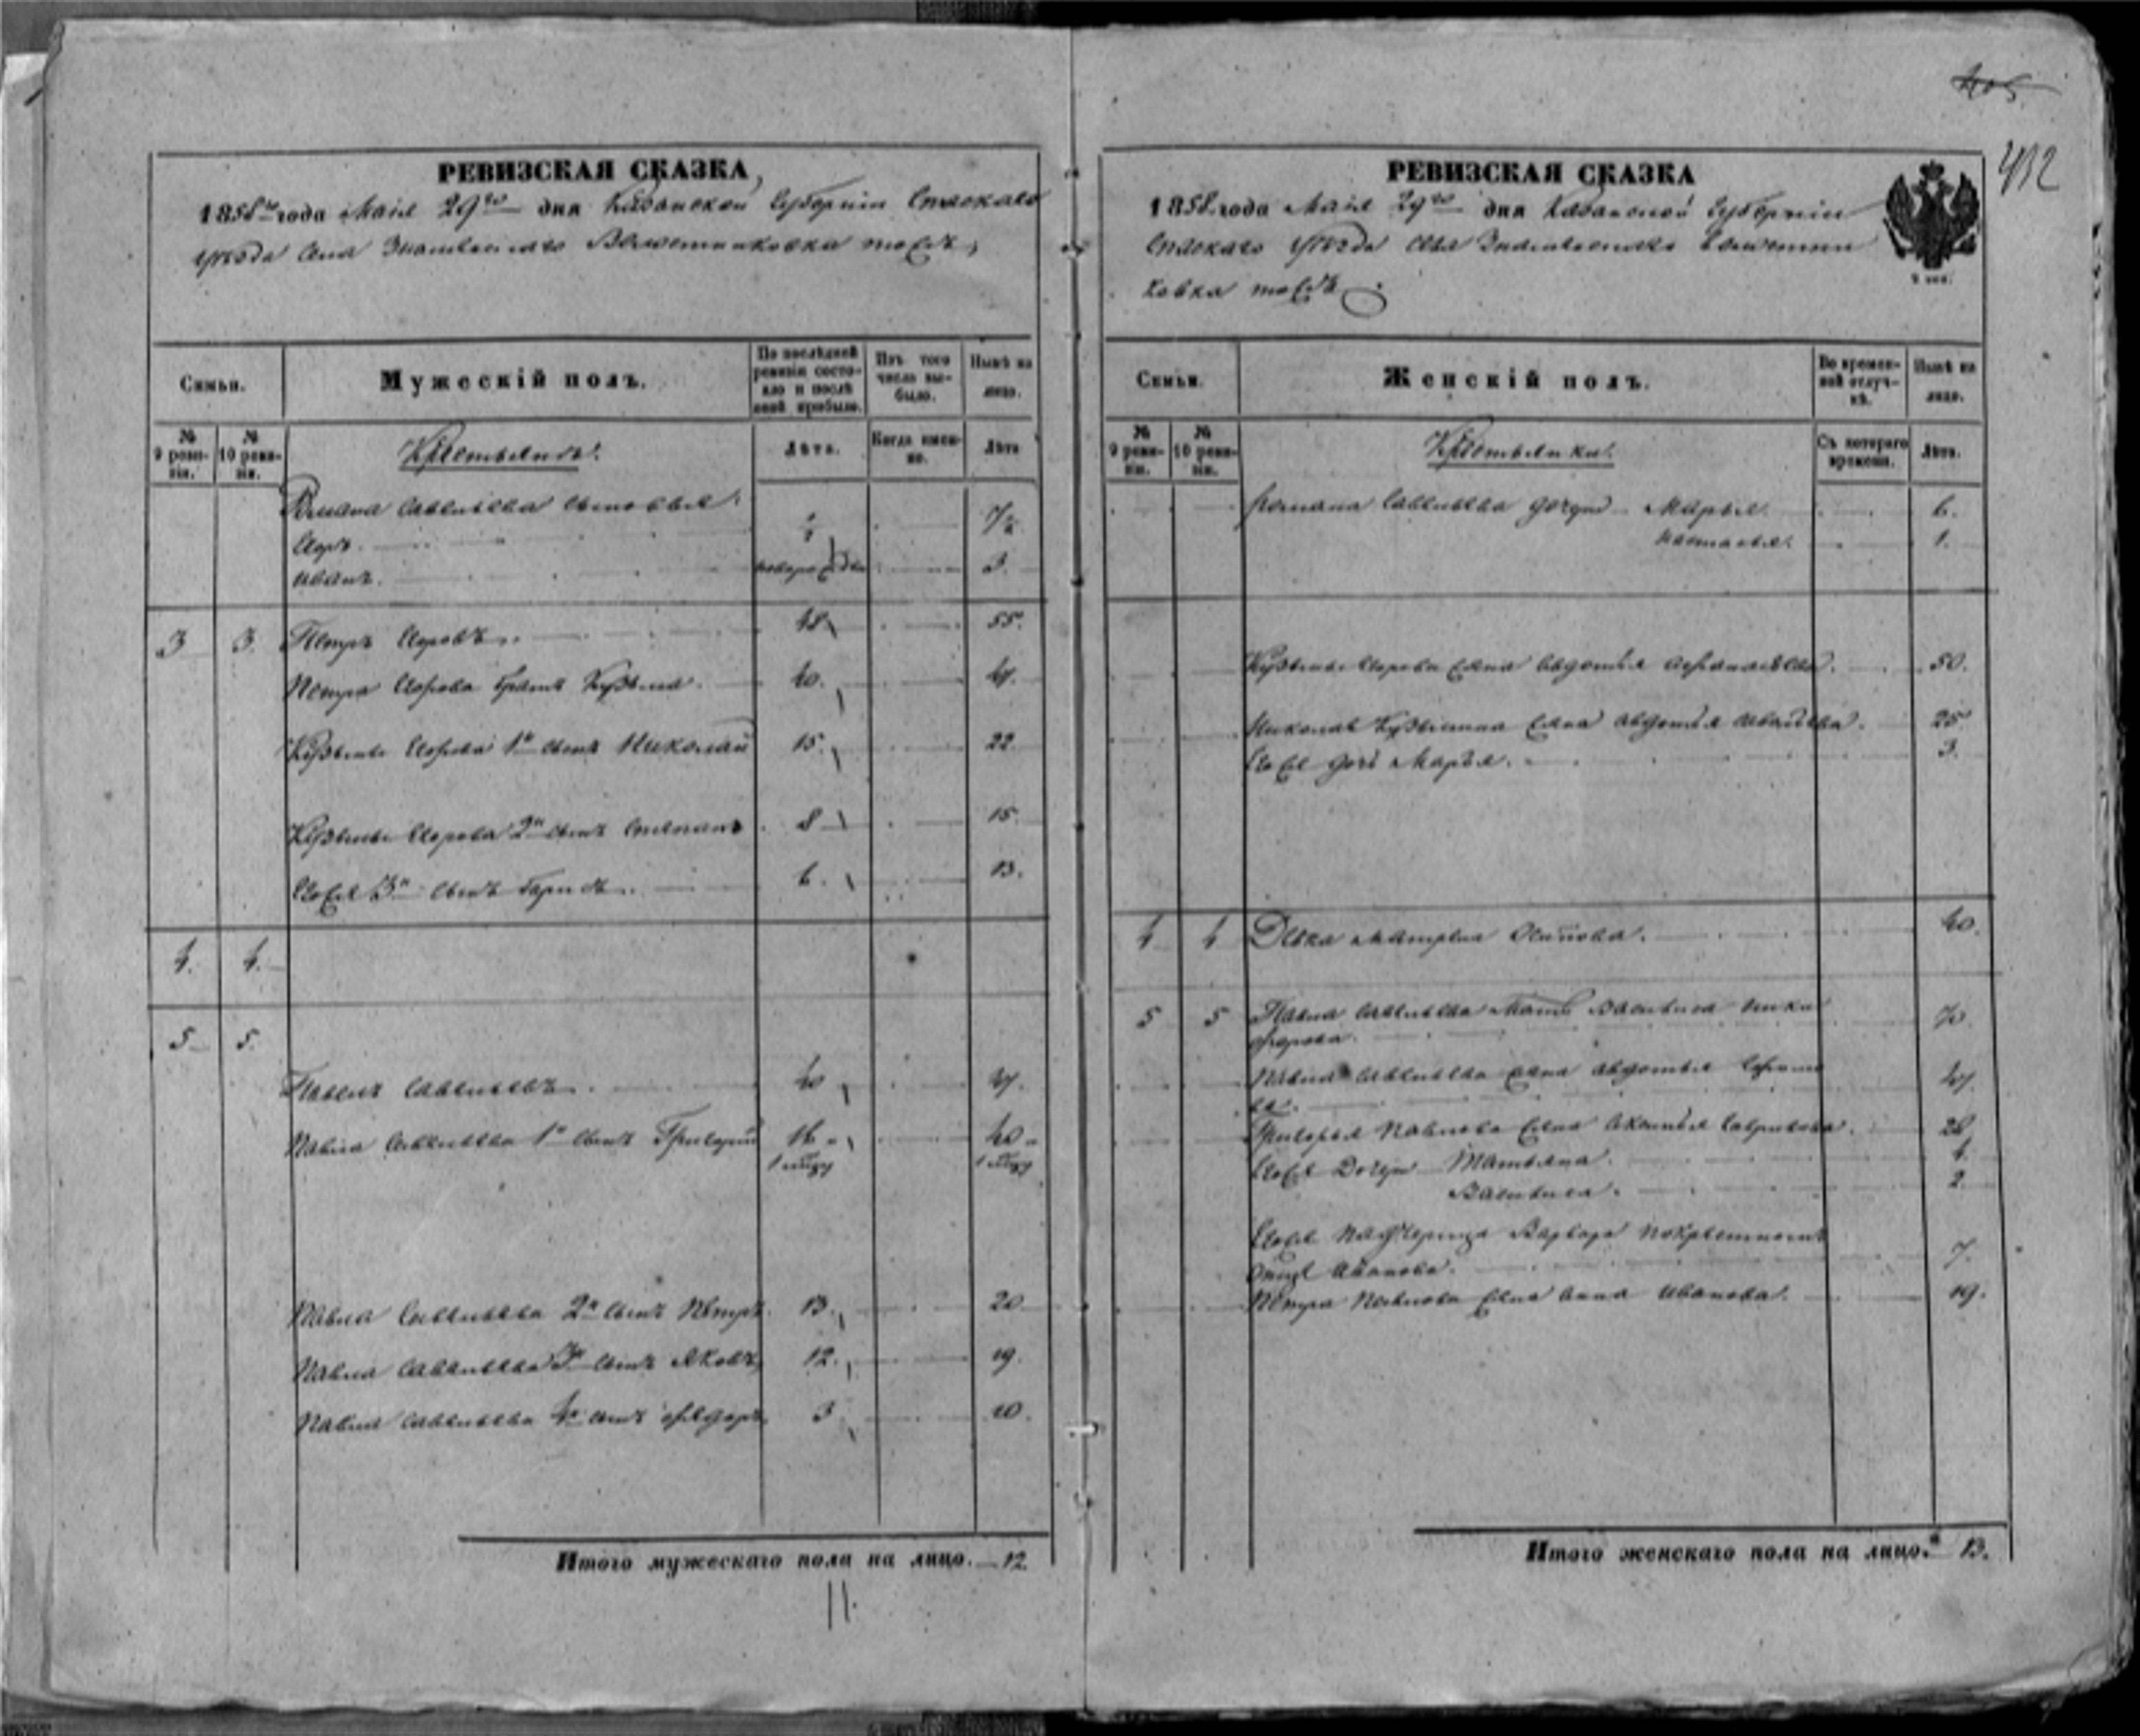 405
412
РЕВИЗСКАЯ СКАЗКА
1858го года Маія 29го дня Казанской Губерніи Спаскаго
уѣзда села Знаменскаго тожъ
Семьи.
Мужескій полъ.
По послѣдней ревизіи состояло и послѣ оной прибыло.
Изъ того числа выбыло.
Нынѣ на лицо.
№ 9 ревизіи.
№ 10 ревизіи.
Крестьяне.
Лѣта.
Когда именно.
Лѣта
Романа Савельева сыновья
Егоръ. 7½
Иванъ. новорожден 3.
3 3. Петръ Егоровъ. 48 55.
Петра Егорова братъ Кузьма. 40. 47.
Кузьмы Егорова 1й сынъ Николай 15. 22
Кузьмы Егорова 2й сынъ Степанъ 8 15.
Его же 3й сынъ Борисъ. 6. 13.
4. 4.
5 5.
Павелъ Савельевъ. 40 47.
Павла Савельева 1й сынъ Григорій
Павла Савельева 2й сынъ Петръ. 13. 20
Павла Савельева 3й сынъ Яковъ 12. 19.
Павла Савельева 4й сынъ Ѳедоръ 3. 10.
Итого мужескаго пола на лицо. 12.
11.
РЕВИЗСКАЯ СКАЗКА
1858 года Маія 29го дня Казанской Губерніи
Спаскаго уѣзда села Знаменскаго
ковка тожъ.
Семьи.
Женскій полъ.
Во временной отлучкѣ.
Нынѣ на лицо.
№ 9 ревизіи.
№ 10 ревизіи.
Крестьянки.
Съ котораго времени.
Лѣта.
Романа Савельева дочери Марья. 6.
Настасья. 1.
Кузьмы Егорова жена Авдотья Афанасьева. 50.
Николая Кузьмина жена Авдотья 25
Его же дочь Марья. 3.
4 4 Девка Матрена Осипова. 40.
5 5 Павла Савельева мать Василиса Ники
форова. 70.
Павла Савельева жена Авдотья 47.
Григорья Павлова жена Гаврилова. 28
Его же дочери Татьяна. 4.
Василиса. 2.
Его же падчерица Варвара по крестному
отцу Иванова. 7.
Петра Павлова жена Анна Иванова. 19.
Итого женскаго пола на лицо. 13.